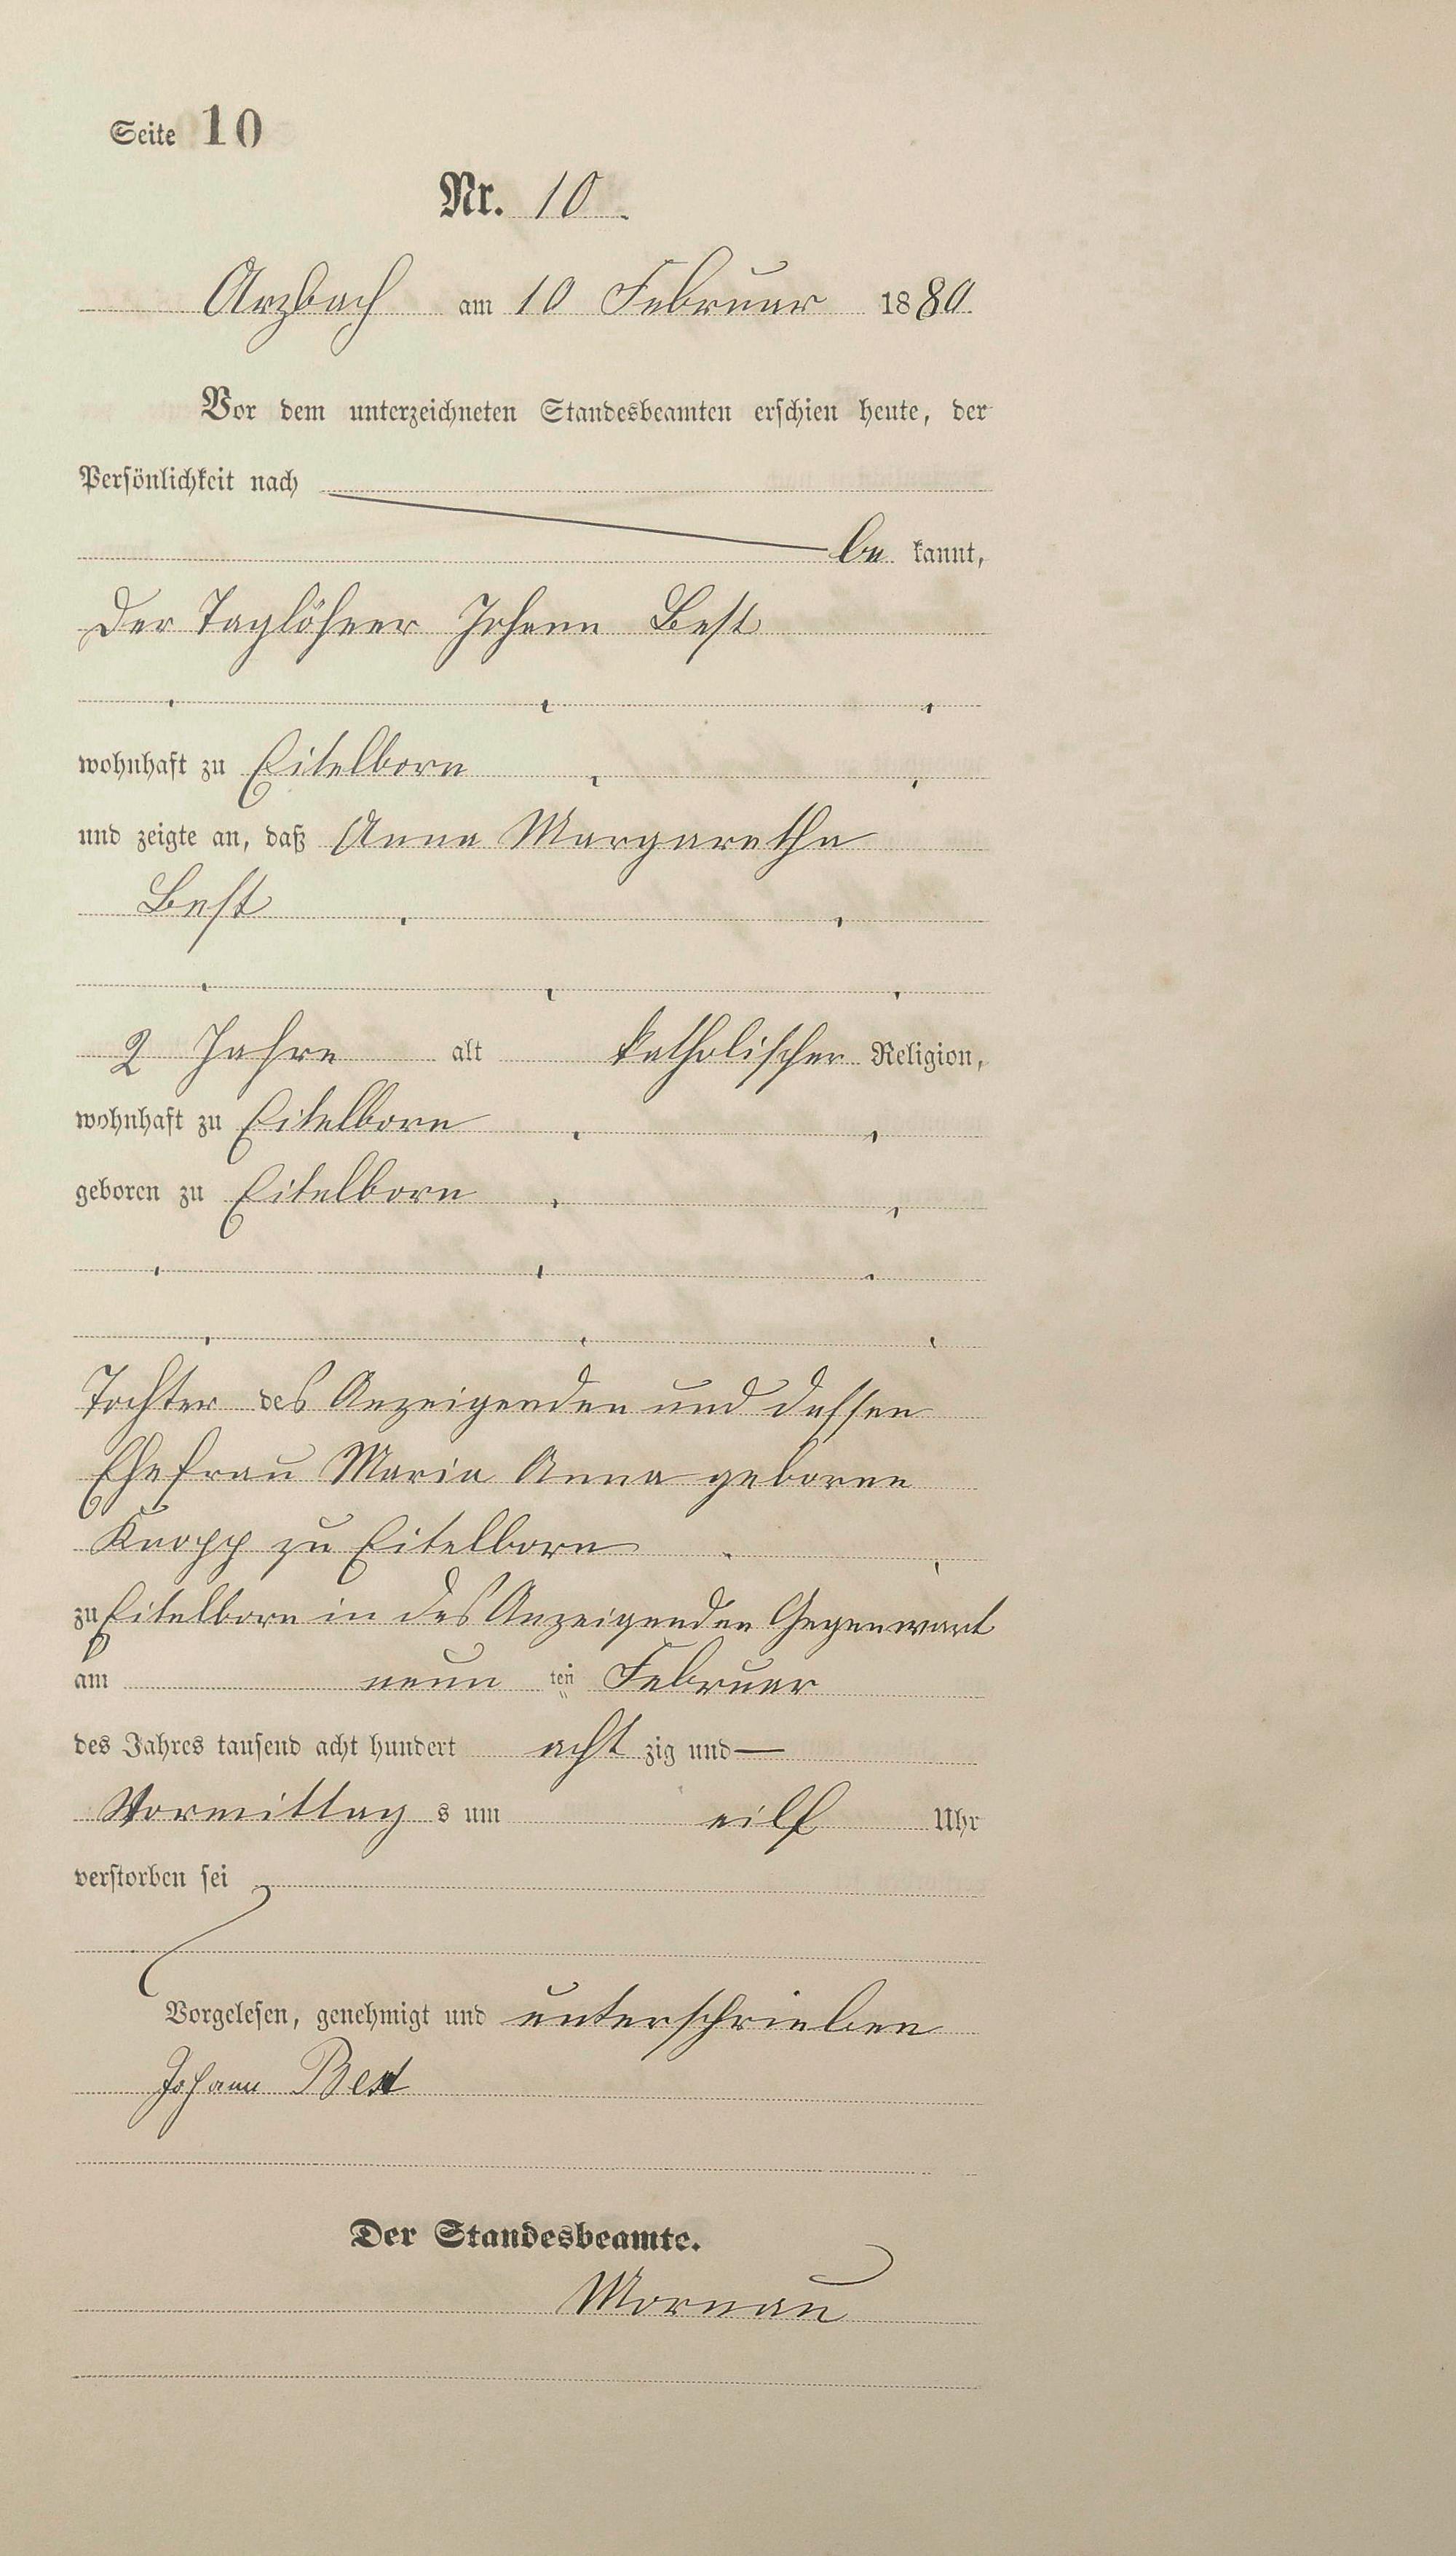 Seite 10
Nr. 10.
Arzbach am 10 Februar 1880.
Vor dem unterzeichneten Standesbeamten erschien heute, der
Persönlichkeit nach
be kannt,
der Taglöhner Johann Best
wohnhaft zu Eitelborn
und zeigte an, daß Anna Margaretha
Best
2 Jahre alt katholischer Religion,
wohnhaft zu Eitelborn
geboren zu Eitelborn
Tochter des Anzeigenden und dessen
Ehefrau Maria Anna geborne
Knopp zu Eitelborn
zu Eitelborn in des Anzeigenden Gegenwart
am neun ten Februar
des Jahres tausend acht hundert acht zig und —
Vormittag s um eilf Uhr
verstorben sei
Vorgelesen, genehmigt und unterschrieben
Johann Best
Der Standesbeamte.
Mornau